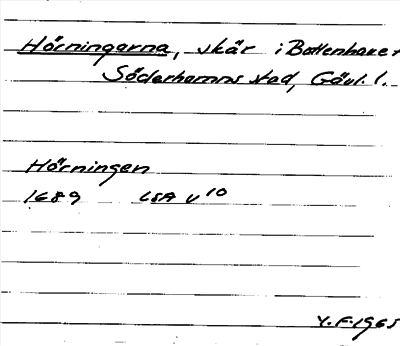 Hörningarna, skär i Bottenhavet
Söderhamns stad, Gävl. l.
Hörningen
1689 LSA U 10
Y.F. 1965